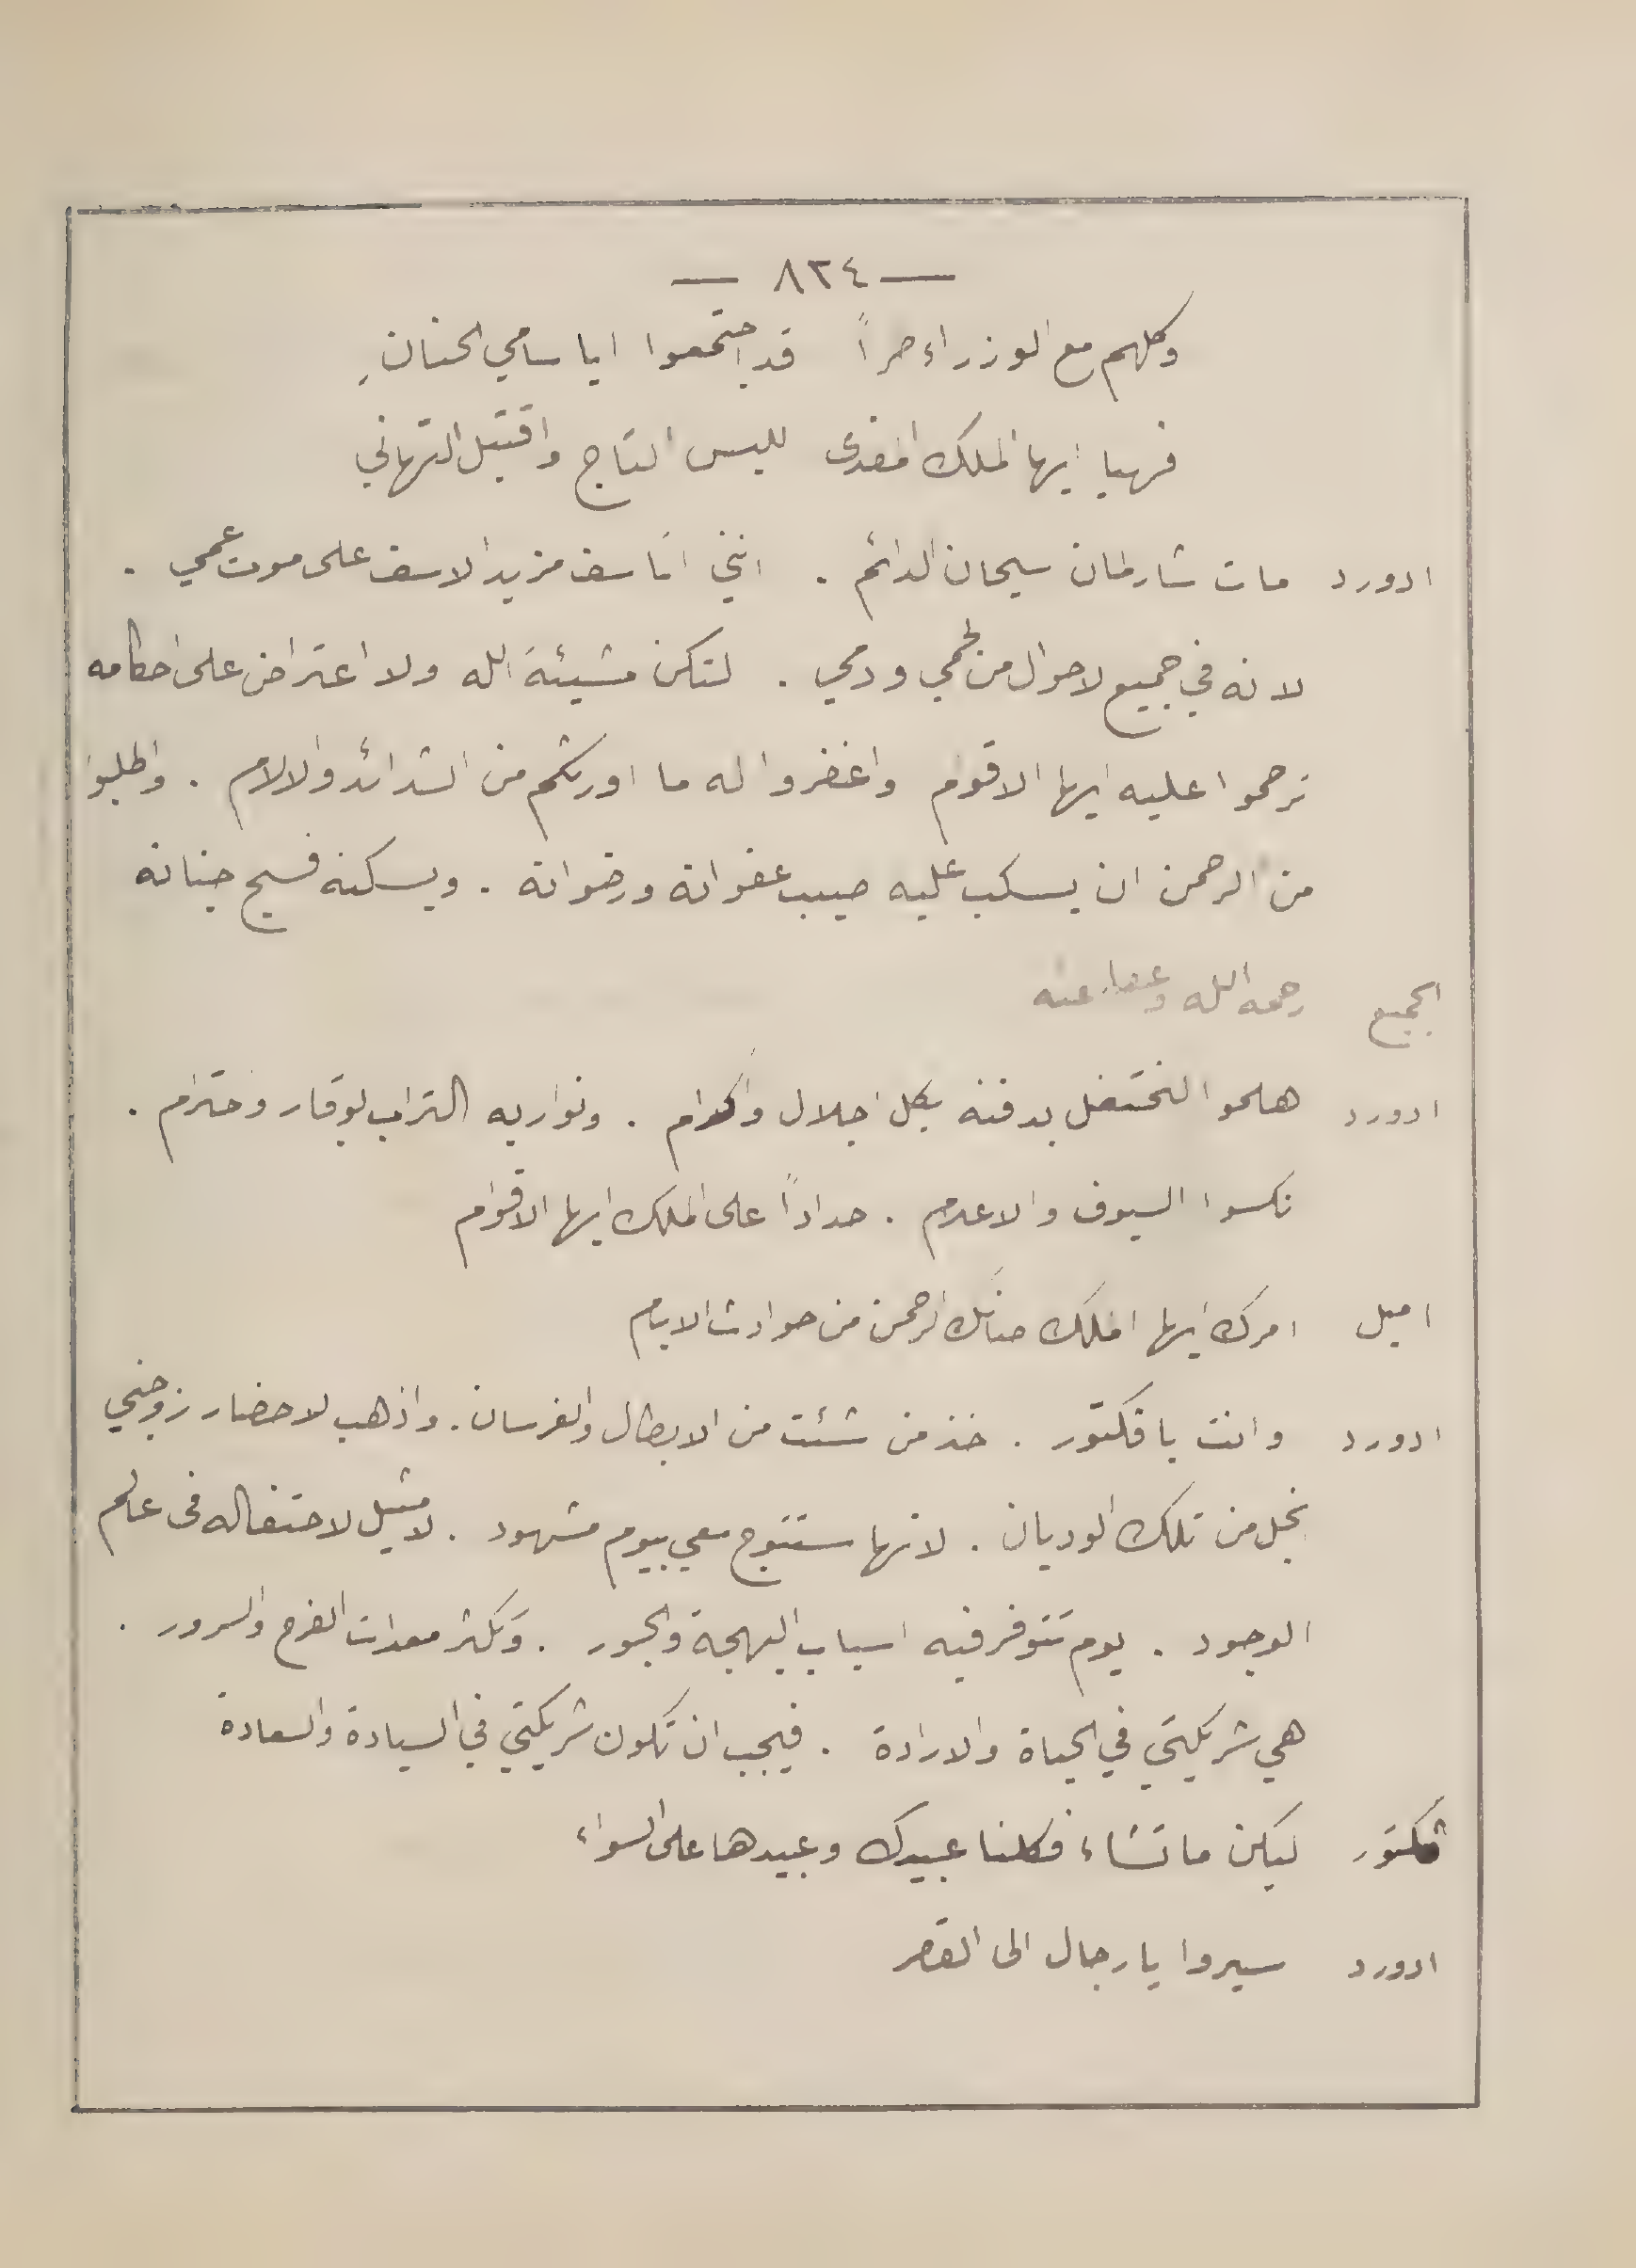 — ٨٣٤ —
وكلهم مع الوزراء صراً قد اجتمعوا ايا سامي الحنانِ
فهيا ايها الملك المفدى للبس التاج واقتبل التهاني
ادورد مات شارلمان سبحان الدائم . انني اتاسف مزيد الاسف على موت عمي .
لانه في جميع لاحوال من لحمي ودمي . لتكن مشيئة الله ولا اعتراض على احكامه
ترحموا عليه ايها الاقوام واغفروا له ما اورثكم من الشدائد والالام . واطلبوا
من الرحمن ان يسكب عليه صيب عفوانه ورضوانه . ويسكنه فسيح جنانه
الجميع رحمه الله وعفا عنه
ادورد هلموا لنحتفل بدفنه بكل اجلال واكرام . ونواريه التراب بوقار وحترام .
نكسوا السيوف والاعلام . حداداً على الملك ايها الاقوام
اميل امرك ايها الملك صانك الرحمن من حوادث الايام
ادورد وانت يا فكتور . خذ من شئت من الابطال والفرسان . واذهب لاحضار زوجتي
نجل من تلك الوديان . لانها ستتوج معي بيوم مشهود . لا مثيل لاحتفاله فى عالم
الوجود . يوم تتوفر فيه اسباب البهجة والحبور . وتكثر معدات الفرح والسرور .
هي شريكتي في الحياة والارادة . فيجب ان تكون شريكتي في السيادة والسعادة
فكتور ليكن ما تشاء فكلنا عبيدك وعبيدها على السواء
ادورد سيروا يا رجال الى القصر